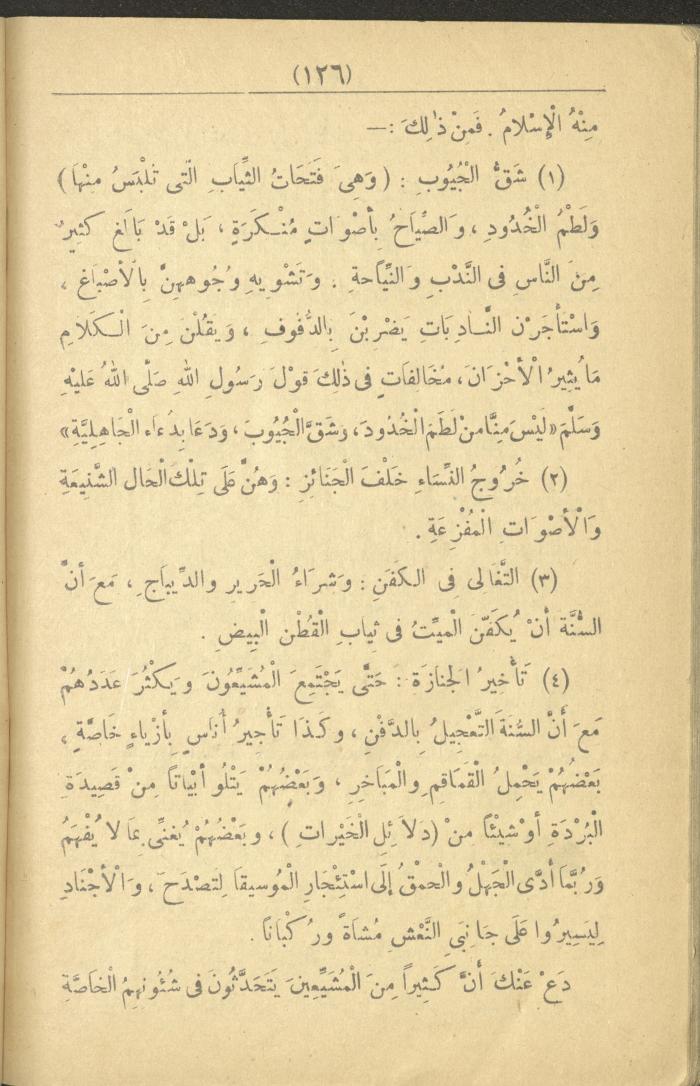 (١٢٦)
مِنْهُ الْإِسْلَامُ . فَمِنْ ذٰلِكَ :—
(١) شَقُّ الْجُيُوبِ : ( وَهِىَ فَتَحَاتُ الثِّيَابِ الَّتى تُلْبَسُ مِنْهَا )
وَلَطْمُ الْخُدُودِ ، وَالصِّيَاحُ بِأَصْوَاتٍ مُنْكَرَةٍ ، بَلْ قَدْ بَالَغَ كَثِيرٌ
مِنَ النَّاسِ فى النَّدْبِ وَالنِّيَاحَةِ . وَتَشْوِيهِ وُجُوهِهِنَّ بِالْأَصْبَاغِ ،
وَاسْتَأْجَرْنَ النَّادِبَاتِ يَضْرِبْنَ بِالدُّفُوفِ ، وَيَقُلْنَ مِنَ الْكَلَامِ
مَا يُثِيرُ الْأَحْزَانَ ، مُخَالِفَاتٍ فى ذٰلِكَ قَوْلَ رَسُولِ اللهِ صَلَّى اللهُ عَلَيْهِ
وَسَلَّمَ « لَيْسَ مِنَّا مَنْ لَطَمَ الْخُدُودَ ، وَشَقَّ الْجُيُوبَ ، وَدَعَا بِدُعَاءِ الْجَاهِلِيَّةِ »
(٢) خُرُوجُ النِّسَاءِ خَلْفَ الْجَنَائِزِ : وَهُنَّ عَلَى تِلْكَ الْحَالِ الشَّنِيعَةِ
وَالْأَصْوَاتِ الْمُفْزِعَةِ .
(٣) التَّغَالِى فِى الكَفَنِ : وَشِرَاءُ الْحَرِيرِ والدِّيبَاجِ ، مَعَ أَنَّ
السُّنَّةَ أَنْ يُكَفَّنَ الْمَيِّتُ فى ثِيَابِ الْقُطْنِ الْبِيضِ .
(٤) تَأْخِيرُ الجِنازَةِ : حَتَّى يَجْتَمِعَ الْمُشَيِّعُونَ وَيَكْثُرَ عَدَدُهُمْ
مَعَ أَنَّ السُّنَةَ التَّعْجِيلُ بِالدَّفْنِ ، وكَذَا تَأْجِيرُ أُنَاسٍ بِأَزْيَاءٍ خَاصَّةٍ ،
بَعْضُهُمْ يَحْمِلُ الْقَمَاقِمَ والْمَبَاخِرَ ، وَبَعْضُهُمْ يَتْلُو أَبْيَاتًا مِنْ قَصِيدَةِ
الْبُرْدَةِ أَوْ شَيْئًا مِنْ ( دَلَائِلِ الْخَيْراتِ ) ، وبَعْضُهُمْ يُغَنِّى بِمَا لَا يُفْهَمُ
وَرُبَّمَا أَدَّى الْجَهْلُ والْحمْقُ إِلَى اسْتِئْجَارِ الْمُوسيقَا لِتصْدَحَ ، وَالْأَجْنَادِ
لِيَسِيرُوا عَلَى جَانِبَىِ النَّعْشِ مُشَاةً ورُكْبَانًا .
دَعْ عَنْكَ أَنَّ كَثِيرًا مِنَ الْمُشَيِّعِينَ يَتَحَدَّثُونَ فى شُئُونِهِمُ الْخَاصَّةِ